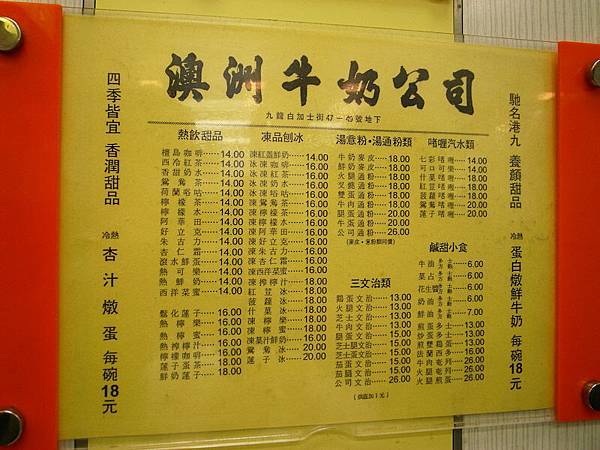 澳洲牛奶公司
九龍白加士街47-49號地下
四季皆宜 香潤甜品
冷熱 杏汁燉蛋 每碗18元
馳名港九 養顏甜品
冷熱 蛋白燉鮮牛奶 每碗18元
熱飲甜品
檀島咖啡……14.00
西冷紅茶……14.00
香甜奶水……14.00
鴛鴦茶……14.00
荷蘭唂咕……14.00
檸檬茶……14.00
檸檬水……14.00
阿華田……14.00
好立克……14.00
朱古力……14.00
杏仁霜……14.00
滾水鮮蛋……14.00
熱可樂……14.00
熱鮮奶……14.00
西洋菜蜜……14.00
鬆化蓮子……16.00
熱檸樂……16.00
熱檸蜜……16.00
熱檸檬汁……18.00
檸檬咖啡……16.00
蓮子蛋茶……18.00
鮮奶蓮子……18.00
凍品刨冰
凍紅蛋鮮奶……14.00
冰凍咖啡……16.00
冰凍紅茶……16.00
冰凍奶水……16.00
冰凍唂咕……16.00
凍鴛鴦茶……16.00
凍檸檬茶……16.00
凍檸檬水……16.00
凍阿華田……16.00
凍好立克……16.00
凍朱古力……16.00
凍杏仁霜……16.00
凍西洋菜蜜……16.00
凍檸檬汁……18.00
紅荳冰……18.00
菠蘿冰……18.00
什菓冰……18.00
凍檸樂……18.00
凍檸蜜……18.00
凍菓汁鮮奶……16.00
鴛鴦冰……20.00
蓮子冰……20.00
湯意粉·湯通粉類
牛奶麥皮……18.00
鮮奶麥皮……18.00
火腿通粉……18.00
叉燒通粉……18.00
雙蛋通粉……18.00
牛肉通粉……18.00
腿蛋通粉……20.00
牛蛋通粉……20.00
公司通粉……26.00
(麥皮·意粉類同價)
三文治類
鷄蛋文治……13.00
火腿文治……13.00
芝士文治……13.00
牛肉文治……13.00
腿蛋文治……15.00
芝士腿文治……15.00
芝士蛋文治……15.00
茄蛋文治……15.00
茄腿文治……15.00
公司文治……26.00
(烘底加1元)
啫喱汽水類
七彩啫喱……14.00
可口可樂……14.00
什菓啫喱……18.00
紅荳啫喱……18.00
菠蘿啫喱……18.00
鴛鴦啫喱……20.00
蓮子啫喱……20.00
鹹甜小食
牛油多士 方飽……6.00
菓占多士 方飽……6.00
花生醬多士 方飽……6.00
奶油多士 方飽……6.00
鮮油多士 方飽……7.00
煎蛋多士……13.00
炒蛋多士……13.00
煎雙鷄蛋……13.00
法蘭西多……16.00
牛肉奄列……26.00
火腿奄列……26.00
火腿煎蛋……26.00